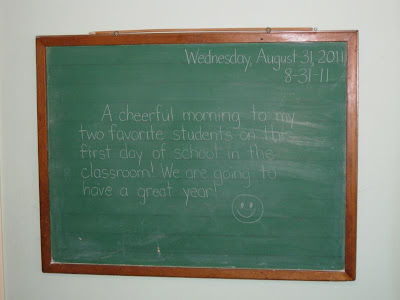 Wednesday, August 31, 2011
8-31-11
A cheerful morning to my
two favorite students on this
first day of school in the
classroom! We are going to
have a great year!